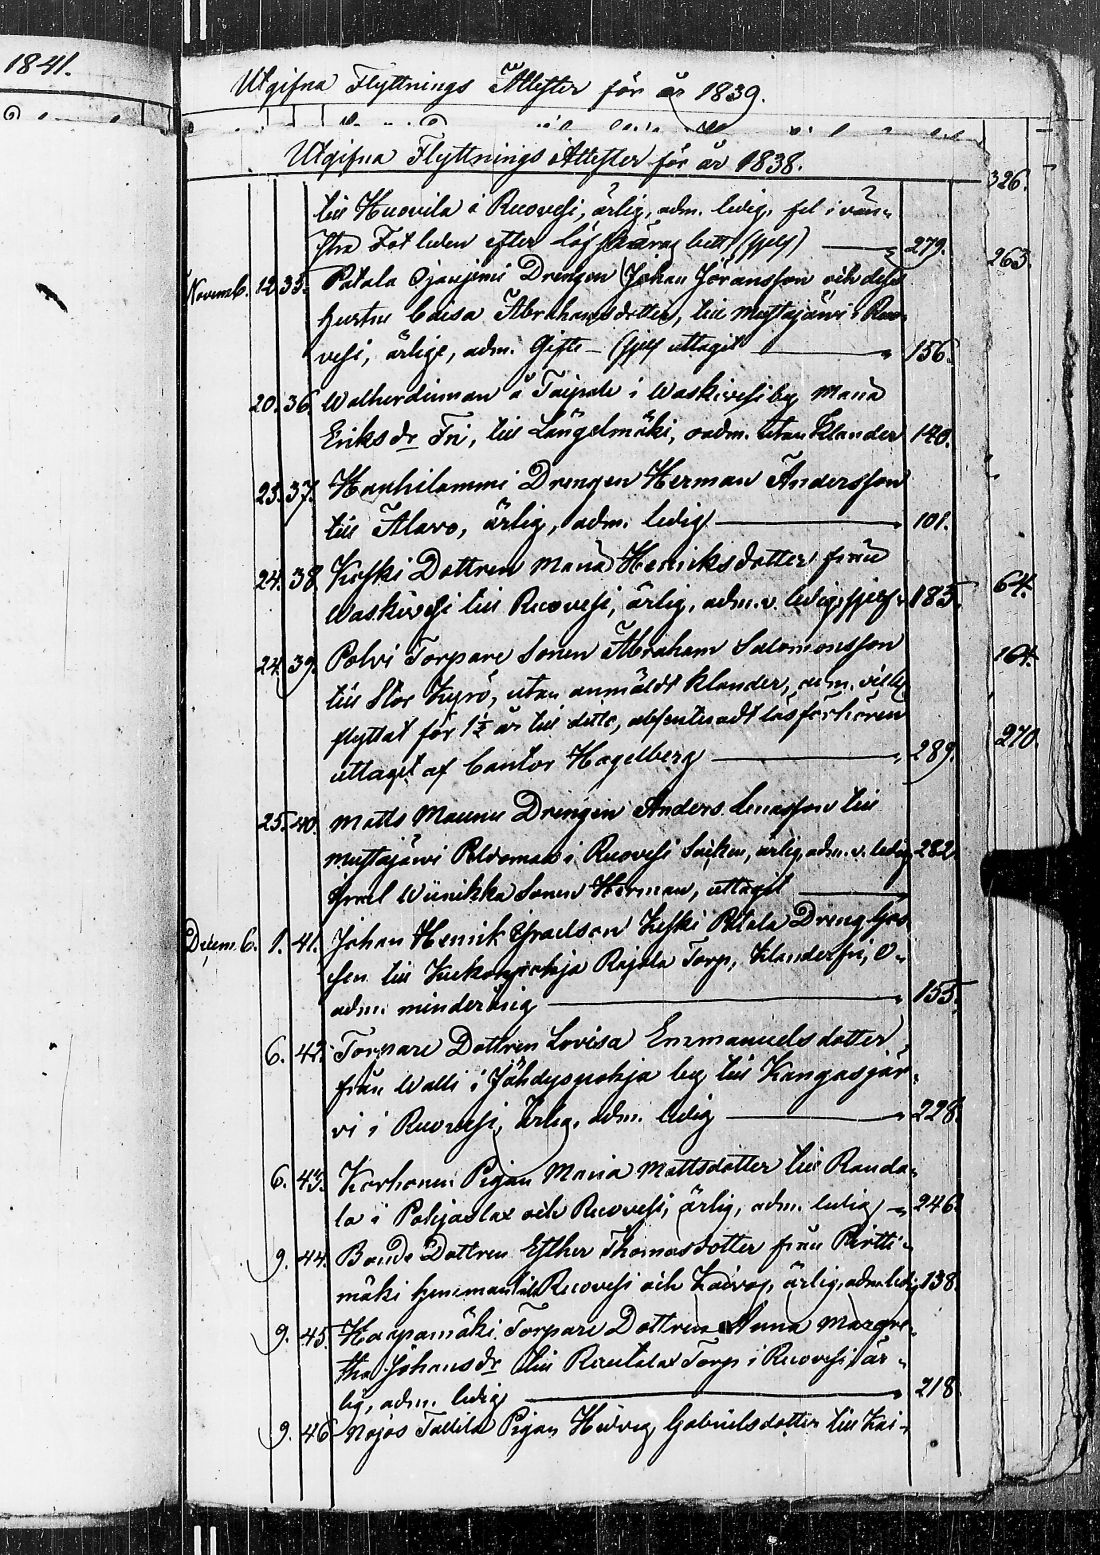 1841.
Utgifna Flyttnings Attester för år 1839.
Utgifna Flyttnings Attester för år 1838.
326.
till Kuovila i Ruovesi, ärlig, adm. ledig, fel i vän-
stra Fot leden efter 279.
263.
Novemb. 12. 35. Patala Ojanjemi Drengen Johan Göransson och dess
hustru Caisa Abrahamsdotter, till Mustajärvi i Ruo-
vesi, ärliga, adm. Gifte – sjelf uttagit 156.
20. 36. à Taipale i Waskivesi by Maria
Eriksdr Fri, till Längelmäki, oadm. utan Klander 140.
23. 37. Hanhilammi Drengen Herman Andersson
till Alavo, ärlig, adm. ledig 101.
24. 38. Keski Dottren Maria Henricksdotter från
Waskivesi till Ruovesi, ärlig, adm. v. ledig, sjelf 185.
64.
24. 39. Polvi Torpare Sonen Abraham Salomonsson
164.
till Stor Kyrö, utan anmäldt klander, adm.
flyttat för 1½ år till dito, absenteradt läsförhören
270.
uttaget af Cantor Hagelberg 289.
25. 40. Matts Maunu Drengen Anders Enasson till
Mustajärvi i Ruovesi Socken, ärlig, adm. v. ledig 282.
Israel Wiinikka Sonen Herman, uttagit
Decemb. 1. 41. Johan Henrick Israelson Keski Patala Dreng Gos-
sen till Rajala Torp, Klanderfri, O-
adm. minderårig 155.
6. 42. Torpare Dottren Lovisa Emmanuelsdotter
från Walli i Jähdyspohja by till Kangasjär-
vi i Ruovesi, ärlig, adm. ledig 228.
6. 43. Korhonen Pigan Maria Mattsdotter till Randa-
la i Pohjaslax och Ruovesi, ärlig, adm. ledig 246.
9. 44. Bonde Dottren Esther Thomasdotter från Pirtti-
mäki hemman till Ruovesi och, ärlig, adm. ledig 138.
9. 45. Haapamäki Torpare Dottren Anna Margre-
tha Johansdr till Rautala Torp i Ruovesi, är-
lig, adm. ledig 218
9. 46. Tallila Pigan Hedvig Gabrielsdotter till Kai-